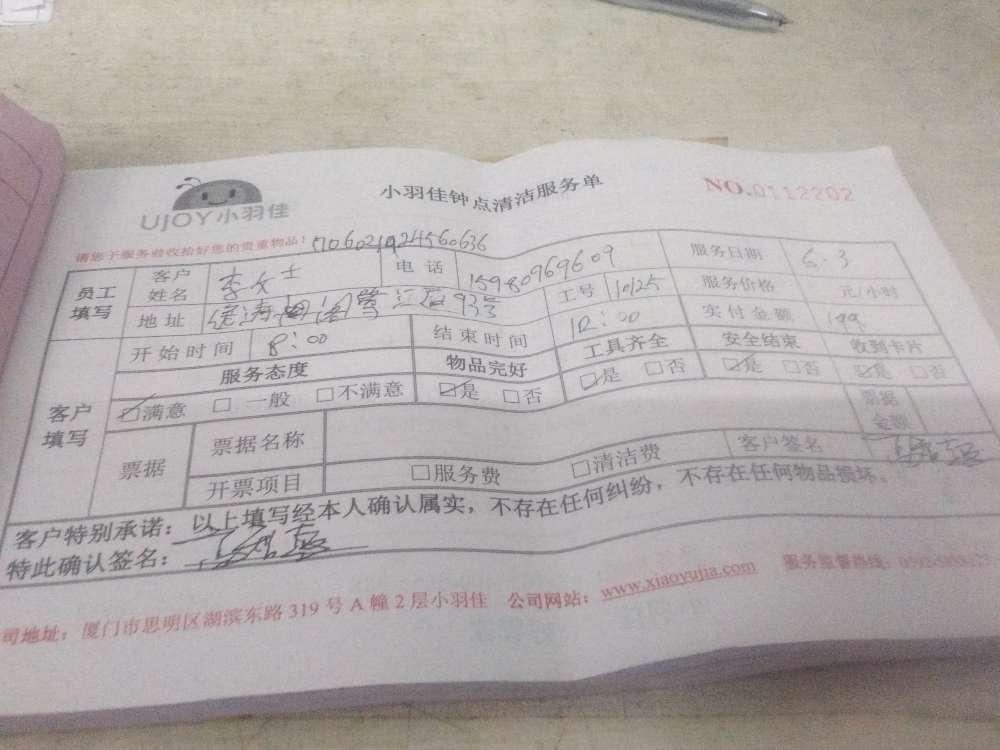 UJOY小羽佳
小羽佳钟点清洁服务单
NO.0112202
请您于服务前收拾好您的贵重物品!
员工填写 客户姓名 李女士 电话 15980969609 服务日期 6.3
地址 93号 工号 10125 服务价格 元/小时
开始时间 8:00 结束时间 12:00 实付金额 199
客户填写 服务态度 物品完好 工具齐全 安全结束 收到卡片
☑满意 □一般 □不满意 ☑是 □否 ☑是 □否 ☑是 □否 ☑是 □否
票据 票据名称 票据金额
开票项目 □服务费 □清洁费 客户签名
客户特别承诺:以上填写经本人确认属实,不存在任何纠纷,不存在任何物品损坏。
特此确认签名:
司地址:厦门市思明区湖滨东路319号A幢2层小羽佳 公司网站:www.xiaoyujia.com 服务监督热线: